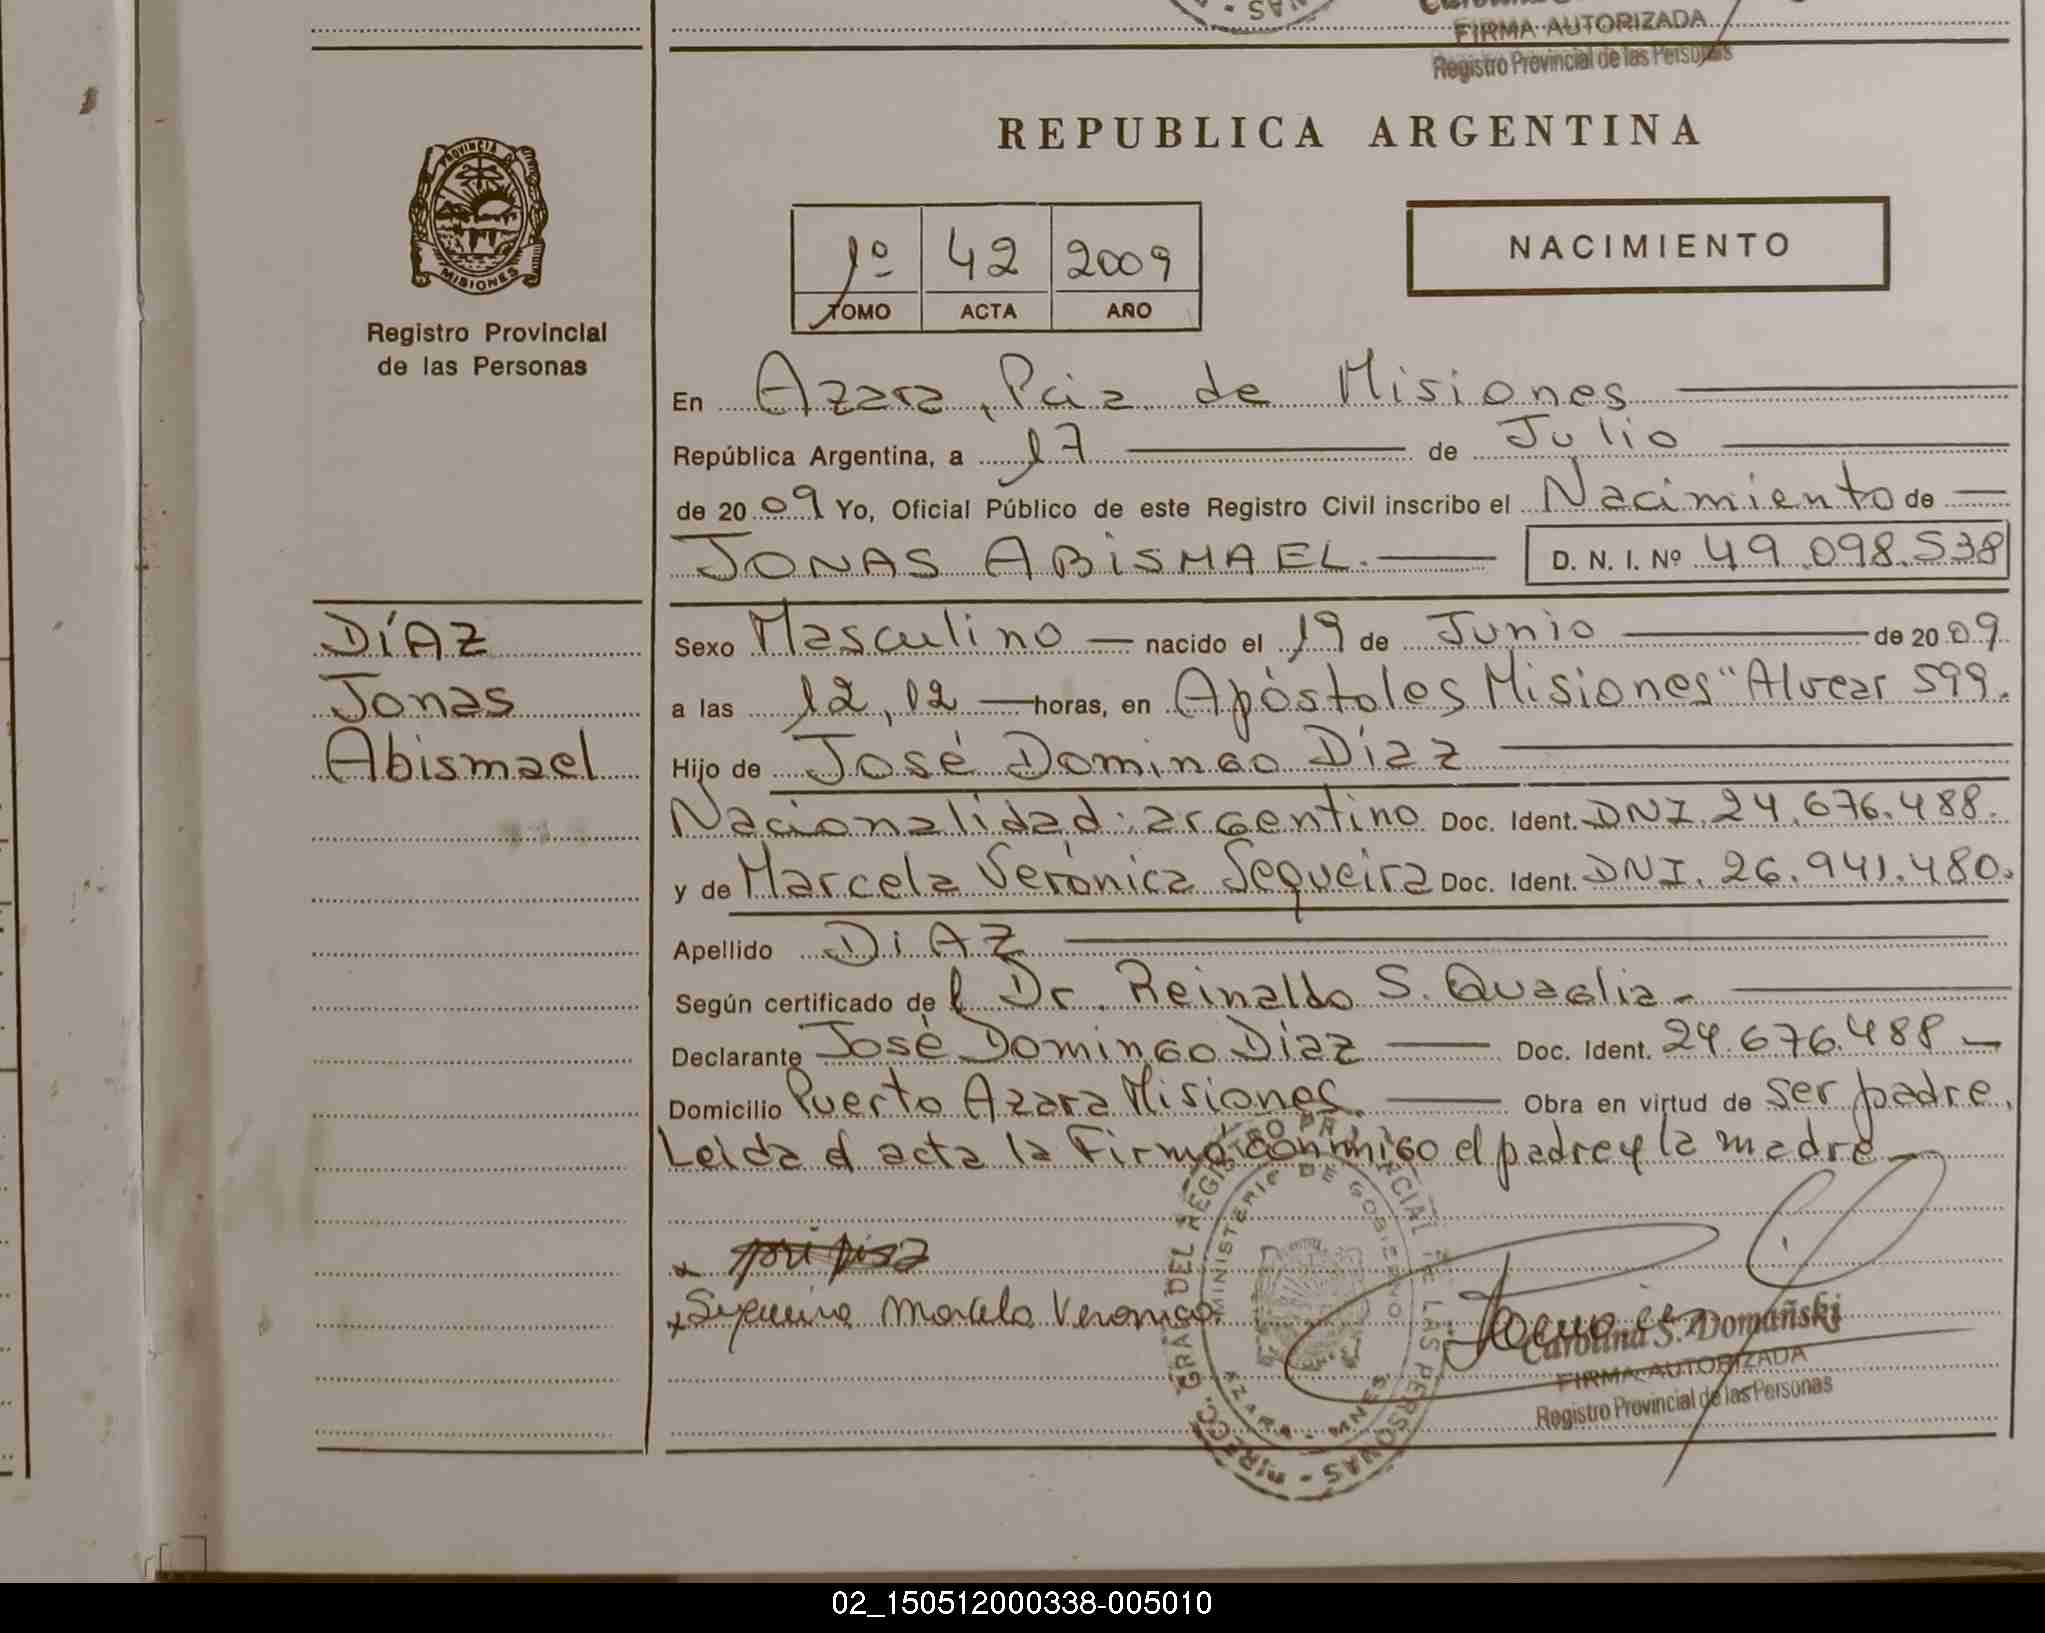 FIRMA AUTORIZADA
Registro Provincial de las Personas
REPUBLICA ARGENTINA
PROVINCIA DE
MISIONES
Registro Provincial
de las Personas
1º 42 2009
TOMO ACTA AÑO
NACIMIENTO
En Azara, Pcia de Misiones
República Argentina, a 17 de Julio
de 2009 Yo, Oficial Público de este Registro Civil inscribo el Nacimiento de
JONAS ABISMAEL. D. N. I. Nº 49.098.538
DÍAZ
Jonas
Abismael
Sexo Masculino nacido el 19 de Junio de 2009
a las 12,12 horas, en Apóstoles Misiones "Alvear 599.
Hijo de José Domingo Díaz
Nacionalidad: argentino Doc. Ident. DNI. 24.676.488.
y de Marcela Verónica Sequeira Doc. Ident. DNI. 26.941.480.
Apellido DiAZ
Según certificado del Dr. Reinaldo S. Quaglia
Declarante José Domingo Díaz Doc. Ident. 24.676.488
Domicilio Puerto Azara Misiones. Obra en virtud de ser padre.
Leida el acta la Firma conmigo el padre y la madre
x
x Sequeira Marcela Veronica
DIRECC. GRAL. DEL REGISTRO PROVINCIAL DE LAS PERSONAS
MINISTERIO DE GOBIERNO
AZARA - MNES
Carolina S. Domañski
FIRMA AUTORIZADA
Registro Provincial de las Personas
02_150512000338-005010